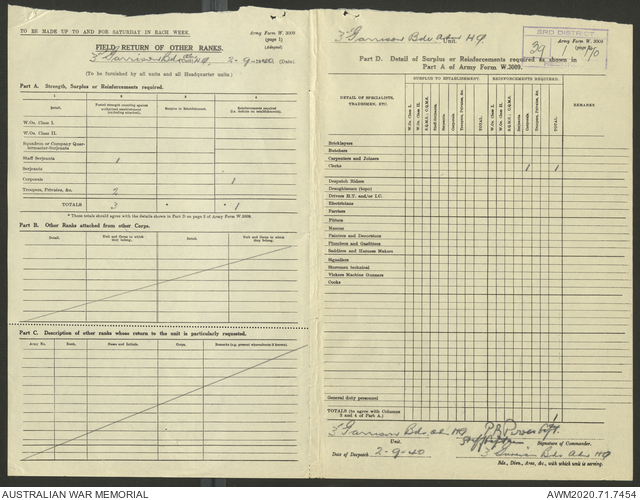 TO BE MADE UP TO AND FOR SATURDAY IN EACH WEEK.
Army Form W. 3009
(page 1)
(Adapted)
FIELD RETURN OF OTHER RANKS.
3 Garrison Bde HQ (Unit) 2-9-1940 (Date)
(To be furnished by all units and all Headquarter units.)
Part A. Strength, Surplus or Reinforcements.
1
2
3
4
Detail.
Posted strength counting against authorised establishment (including attached).
Surplus to Establishment.
Reinforcements required (i.e. deficient to establishment).
W.Os. Class I.
W.Os. Class II.
Squadron or Company Quartermaster-Serjeants
Staff Serjeants 1
Serjeants
Corporals 1
Troopers, Privates, &c. 2
TOTALS 3 * * 1
* These totals should agree with the details shown in Part D on page 2 of Army Form W.3009.
Part B. Other Ranks attached from other Corps.
Detail.
Unit and Corps to which they belong.
Detail.
Unit and Corps to which they belong.
Part C. Description of other ranks whose return to the unit is particularly requested.
Army No.
Rank.
Name and Initials.
Corps.
Remarks (e.g. present whereabouts if known).
3 Garrison Bde HQ
Unit.
Army Form W. 3009
(page 2)
3RD DISTRICT
39 1 40
Part D. Detail of Surplus or Reinforcements required as shown in
Part A of Army Form W.3009.
DETAIL OF SPECIALISTS, TRADESMEN, ETC.
SURPLUS TO ESTABLISHMENT.
REINFORCEMENTS REQUIRED.
REMARKS
W.Os. Class I.
W.Os. Class II.
S.Q.M.S.; C.Q.M.S.
Staff Serjeants
Serjeants
Corporals
Troopers, Privates, &c.
TOTAL
W.Os. Class I.
W.Os. Class II.
S.Q.M.S.; C.Q.M.S.
Serjeants
Corporals
Troopers, Privates, &c.
TOTAL
Bricklayers
Butchers
Carpenters and Joiners
Clerks 1 1
Despatch Riders
Draughtsmen (topo)
Drivers H.T. and/or I.C.
Electricians
Farriers
Fitters
Masons
Painters and Decorators
Plumbers and Gasfitters
Saddlers and Harness Makers
Signallers
Storemen technical
Vickers Machine Gunners
Cooks
General duty personnel
TOTALS (to agree with Columns 3 and 4 of Part A.) 1
3 Garrison Bde HQ
Unit.
Staff Captain
Signature of Commander.
Date of Despatch 2-9-40
3 Garrison Bde HQ
Bde., Divn., Area, &c., with which unit is serving.
AUSTRALIAN WAR MEMORIAL
AWM2020.71.7454